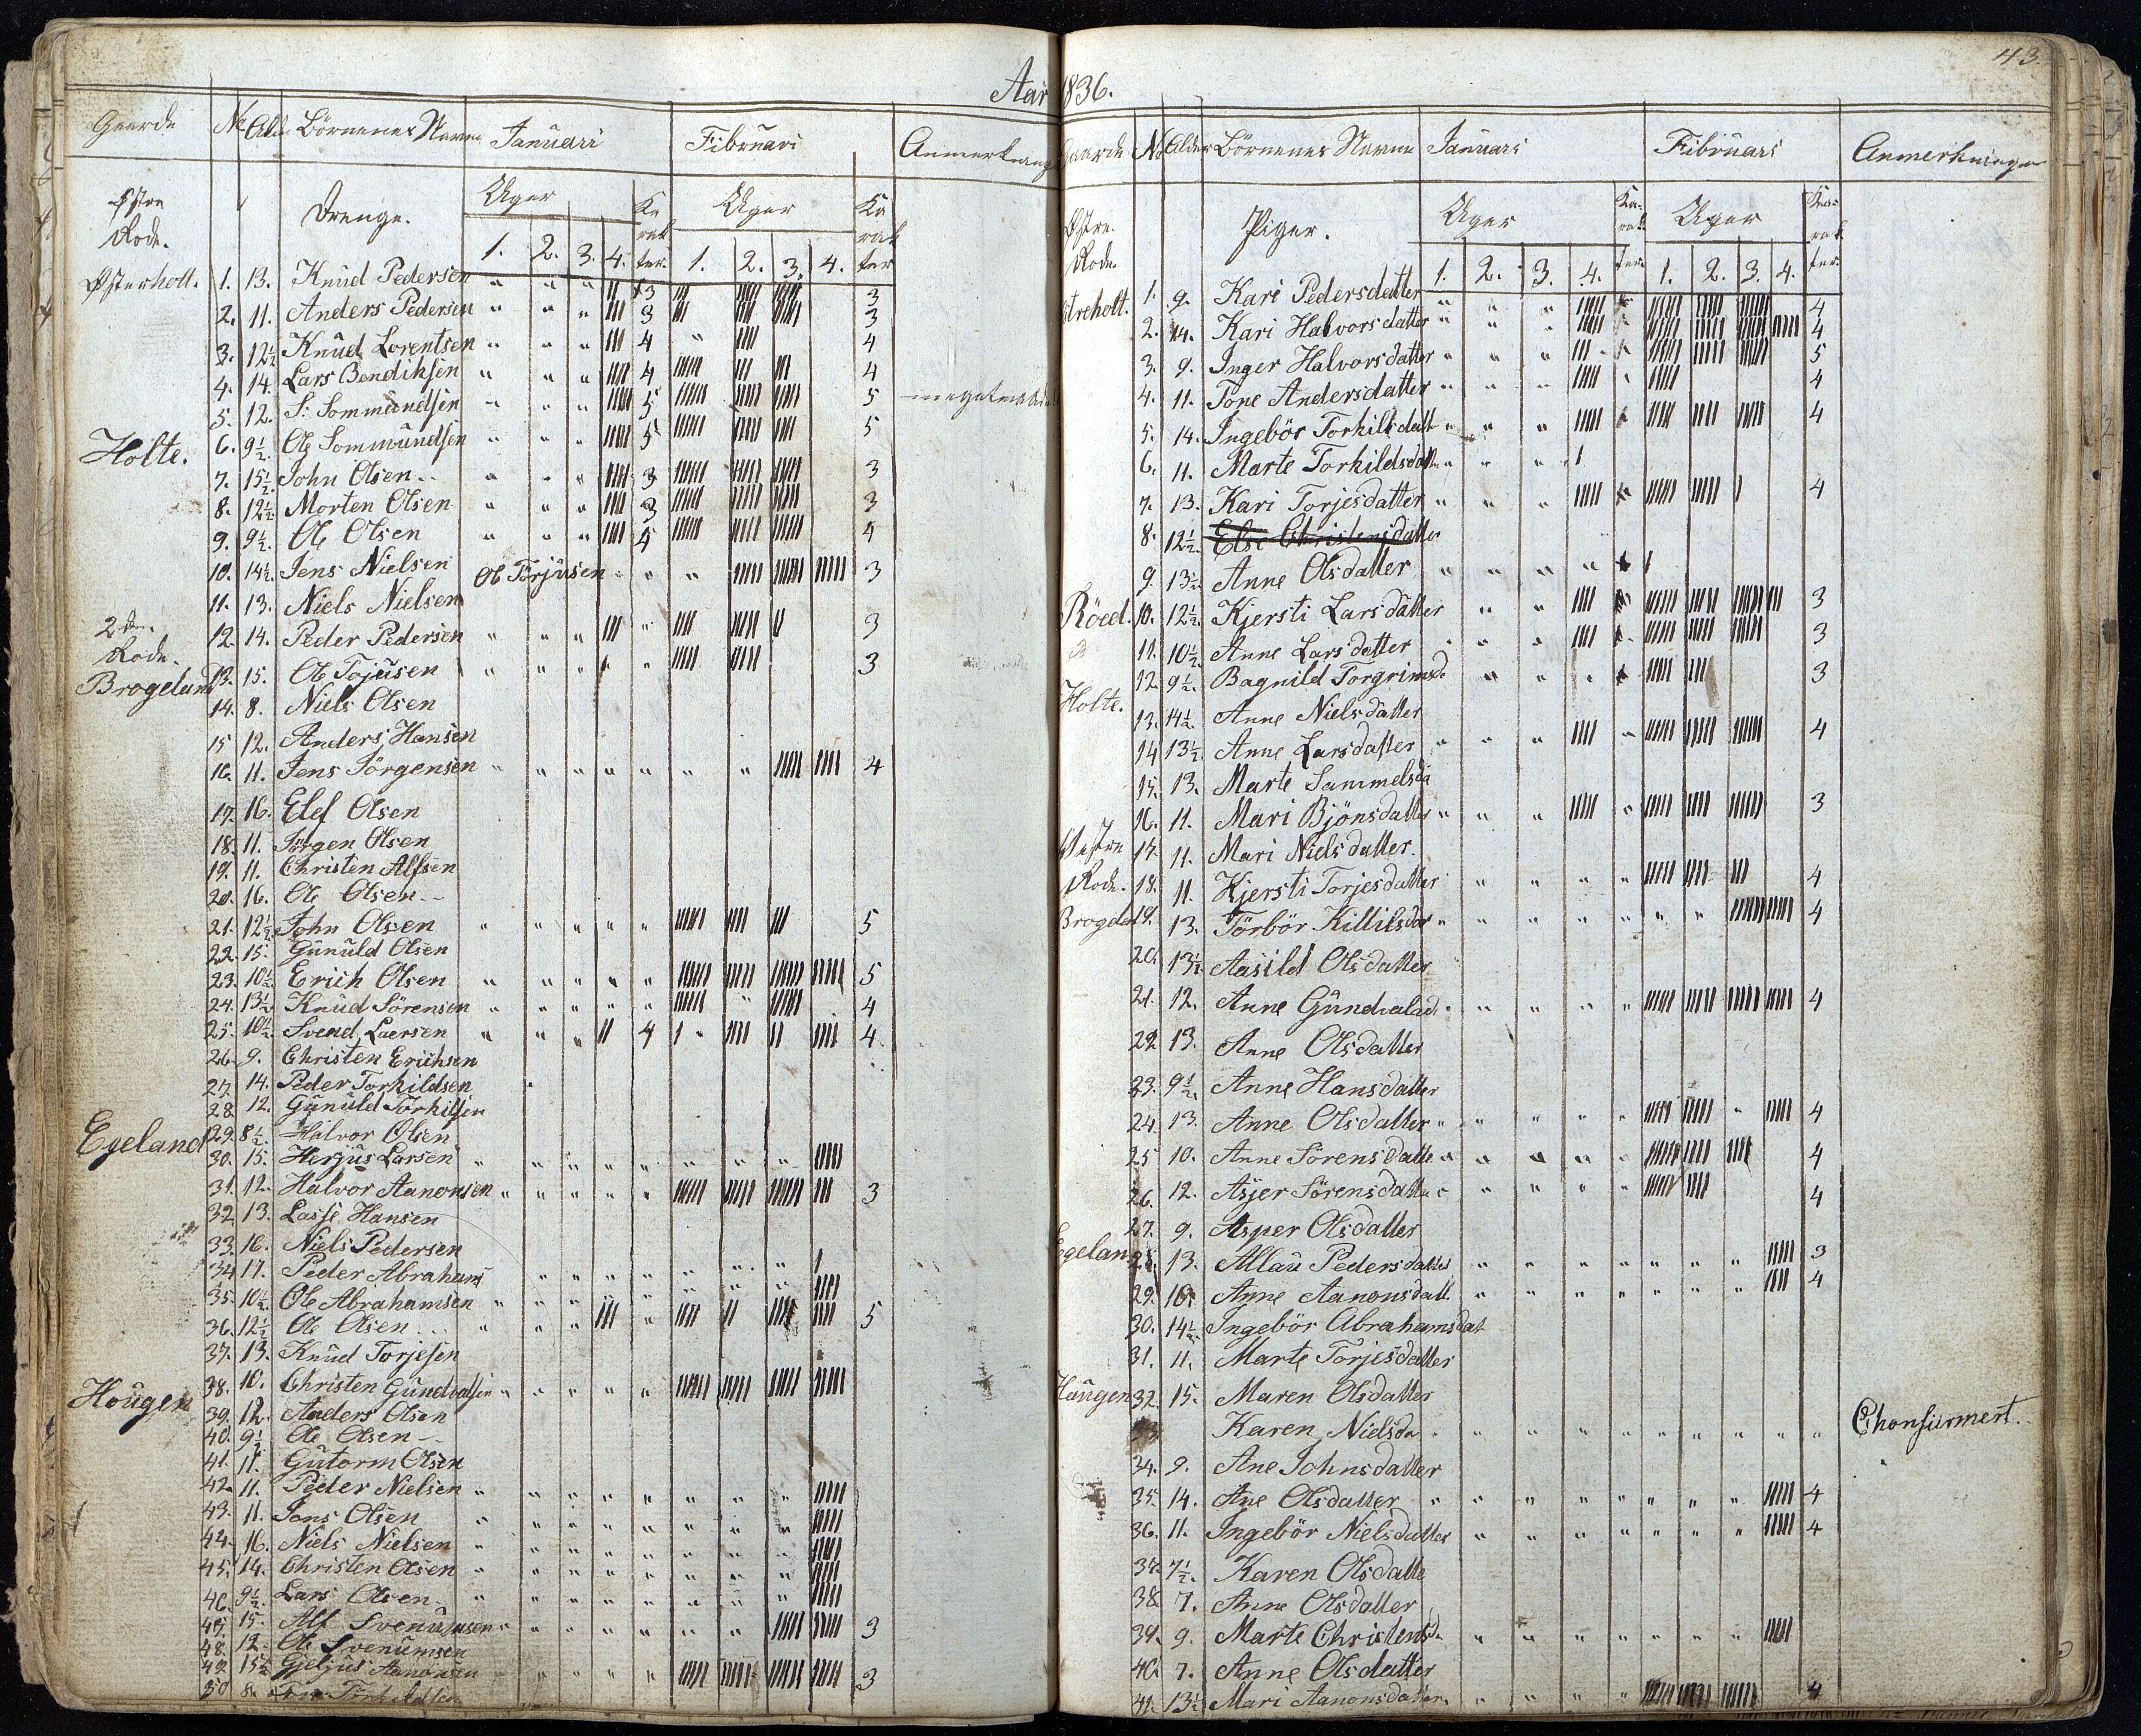 43
Aar 1836.
Gaarde No Alder Börnenes Navne Januari Fibruari Anmerkning
Østre Rode. Drenge. Uger Ka rak ter. Uger Ka rak ter
1. 2. 3. 4. 1. 2. 3. 4.
Østerholt. 1. 13. Knud Pedersen 3 3
2. 11. Anders Pedersen 3 3
3. 12½ Knud Lorentsen 4 4
4. 14. Lars Bendiksen 4 4
5. 12. S: Sommundsen 5 5
Holte. 6. 9½. Ole Sommundsen 5 5
7. 15½ John Olsen 3 3
8. 12½ Morten Olsen 3 3
9. 9½. Ole Olsen 4 4
10. 14½. Jens Nielsen Ole Torjusen 3
11. 13. Niels Nielsen
2den Rode. 12. 14. Peder Pedersen 3
Brogeland 13. 15. Ole Tojusen 3
14. 8. Niels Olsen
15 12. Anders Hansen
16. 11. Jens Jörgensen 4
17. 16. Elef Olsen
18. 11. Jörgen Olsen
19. 11. Christen Alfsen
20. 16. Ole Olsen
21. 12½ John Olsen 5
22. 15. Gunuld Olsen
23. 10½ Erich Olsen 5
24. 13½ Knud Sörensen 4
25. 10½ Svend Laersen 4 4
26. 9. Christen Erichsen
27 14. Peder Torkildsen
28 12. Gunuld Torkilsen
Egeland 29. 8½. Halvor Olsen
30. 15. Herjus Larsen
31. 12. Halvor Aanonsen 3
32 13. Lasse Hansen
33. 16. Niels Pedersen
34 17. Peder Abrahams
35. 10½. Ole Abrahamsen
36. 12½ Ole Olsen 5
37. 13. Knud Torjesen
Hougen 38. 10. Christen Gundvalsen
39. 12. Anders Olsen
40. 9½ Ole Olsen
41. 11. Gutorm Olsen
42. 11. Peder Nielsen
43. 11. Jons Olsen
44. 16. Niels Nielsen
45. 14. Christen Olsen
46. 9½ Lars Olsen
47. 15. Alf Svenumsen 3
48. 12. Ole Svenumsen
49. 15½ Gjeljus Aanonsen 3
50 8.
Gaarde No Alder Börnenes Navne Januari Fibruari Anmerkninger
Østre. Rode. Piger. Uger Ka- rak ter. Uger Kar- rak ter.
1. 2. 3. 4. 1. 2. 3. 4.
streholt. 1. 9. Kari Pedersdatter 4
2. 14. Kari Halvorsdatter 4
3. 9. Inger Halvorsdatter 5
4. 11. Tone Andersdatter 4
5. 14. Ingebör Torkildsdatt 4
6. 11. Marte Torkildsdatt
7. 13. Kari Torjesdatter 4
8. 12½. Else Christensdatter
9. 13½ Anne Olsdatter
Röed. 10. 12½. Kjersti Larsdatter 3
11. 10½ Anne Larsdatter 3
12. 9½. Bagnild Torgrimsd. 3
Holte. 13. 14½. Anne Nielsdatter
14 13½. Anne Larsdatter 4
15. 13. Marte Sammelsda
16. 11. Mari Bjönsdatter 3
Vestre 17. 11. Mari Nielsdatter.
Rode. 18. 11. Kjersti Torjesdatter 4
Brogeland 19. 13. Törbör Killilsdat 4
20. 13½ Aasild Olsdatter
21. 12. Anne Gundvalsd. 4
22 13. Anne Olsdatter
23. 9½. Anne Hansdatter
24. 13. Anne Olsdatter 4
25 10. Anne Sörensdatte 4
26. 12. Asjer Sörensdatter 4
27. 9. Asper Olsdatter
Egeland 28. 13. Allau Pedersdatter 3
29. 10. Anne Aanonsdatt. 4
30. 14½. Ingebör Abrahamsdat
31. 11. Marte Torjesdatter
Haugen 32. 15. Maren Olsdatter
33. Karen Nielsda Chonfirmert.
34. 9. Ane Johnsdatter
35. 14. Ane Olsdatter 4
36. 11. Ingebör Nielsdatter 4
37. 7½. Karen Olsdatte
38. 7. Anne Olsdatter
39. 9. Marte Christensd.
40. 7. Anne Olsdatter
41. 13½ Mari Aanonsdatter. 4